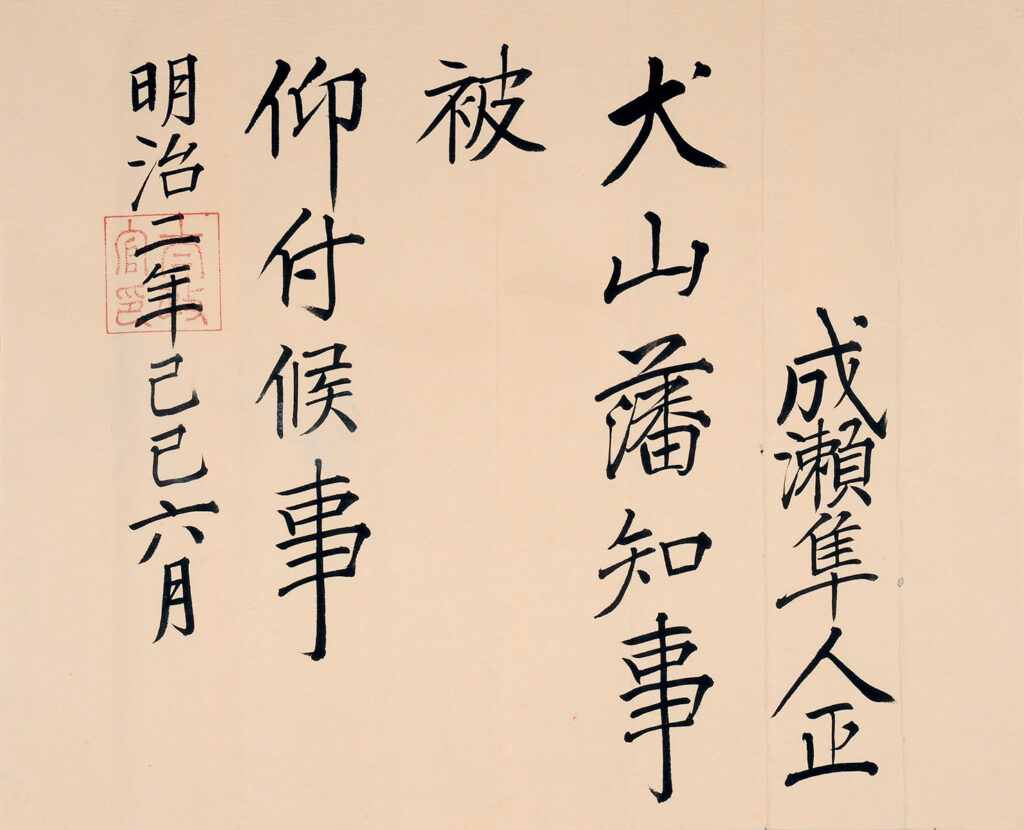 成瀬隼人正
犬山藩知事
被
仰付候事
明治二年己巳六月